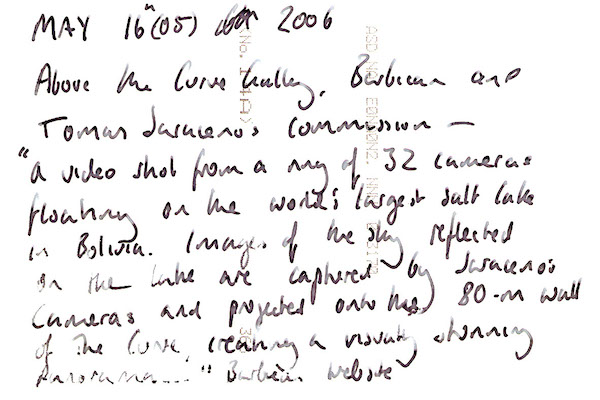 MAY 16th (05) 2006
Above the Curve Gallery, Barbican and
Tomas Saraceno's commission —
"A video shot from a ring of 32 cameras
floating on the world's largest salt lake
in Bolivia. Images of the sky reflected
on the lake are captured by Saraceno's
cameras and projected onto the 80-m wall
of The Curve, creating a visually stunning
panorama...." Barbican website